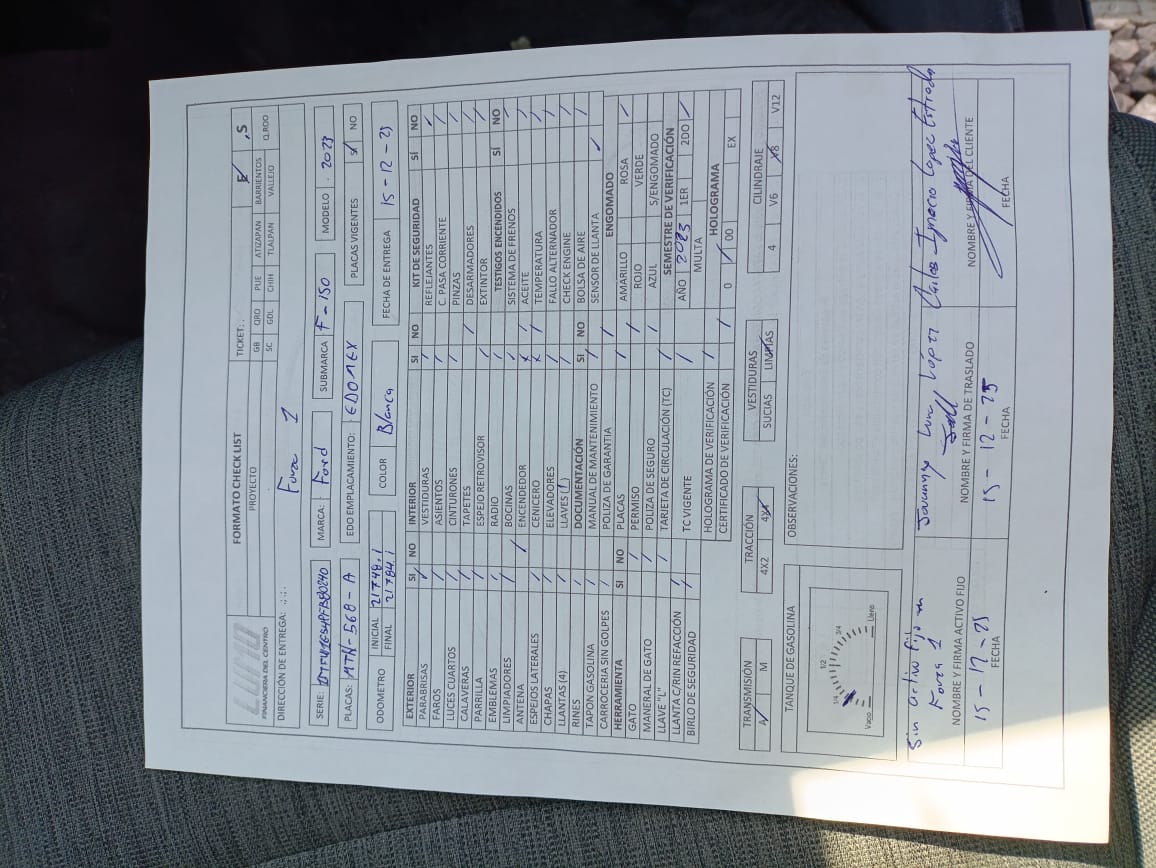 FINANCIERA DEL CENTRO
FORMATO CHECK LIST
PROYECTO
TICKET:
GB QRO PUE ATIZAPAN BARRIENTOS
SC GDL CHIH TLALPAN VALLEJO Q.ROO
DIRECCIÓN DE ENTREGA: Fora 1
SERIE: MARCA: Ford SUBMARCA F-150 MODELO 2023
PLACAS: MTN-568-A EDO EMPLACAMIENTO: EDOMEX PLACAS VIGENTES SI NO
ODOMETRO INICIAL 21748.1 COLOR Blanca FECHA DE ENTREGA 15-12-25
FINAL 21784.1
EXTERIOR SI NO
PARABRISAS
FAROS
LUCES CUARTOS
CALAVERAS
PARRILLA
EMBLEMAS
LIMPIADORES
ANTENA
ESPEJOS LATERALES
CHAPAS
LLANTAS (4)
RINES
TAPON GASOLINA
CARROCERIA SIN GOLPES
HERRAMIENTA SI NO
GATO
MANERAL DE GATO
LLAVE "L"
LLANTA C/RIN REFACCIÓN
BIRLO DE SEGURIDAD
INTERIOR SI NO
VESTIDURAS
ASIENTOS
CINTURONES
TAPETES
ESPEJO RETROVISOR
RADIO
BOCINAS
ENCENDEDOR
CENICERO
ELEVADORES
LLAVES (1)
DOCUMENTACIÓN SI NO
MANUAL DE MANTENIMIENTO
POLIZA DE GARANTIA
PLACAS
PERMISO
POLIZA DE SEGURO
TARJETA DE CIRCULACIÓN (TC)
TC VIGENTE
HOLOGRAMA DE VERIFICACIÓN
CERTIFICADO DE VERIFICACIÓN
KIT DE SEGURIDAD SÍ NO
REFLEJANTES
C. PASA CORRIENTE
PINZAS
DESARMADORES
EXTINTOR
TESTIGOS ENCENDIDOS SÍ NO
SISTEMA DE FRENOS
ACEITE
TEMPERATURA
FALLO ALTERNADOR
CHECK ENGINE
BOLSA DE AIRE
SENSOR DE LLANTA
ENGOMADO
AMARILLO ROSA
ROJO VERDE
AZUL S/ENGOMADO
SEMESTRE DE VERIFICACIÓN
AÑO 2025 1ER 2DO
MULTA
HOLOGRAMA
0 00 EX
TRANSMISIÓN
A M
TRACCIÓN
4X2 4X4
VESTIDURAS
SUCIAS LIMPIAS
CILINDRAJE
4 V6 V8 V12
TANQUE DE GASOLINA
Vacio 1/4 1/2 3/4 Lleno
OBSERVACIONES:
Sin Activo Fijo en
Fora 1
NOMBRE Y FIRMA ACTIVO FIJO
15-12-25
FECHA
López
NOMBRE Y FIRMA DE TRASLADO
15-12-25
FECHA
Carlos Ignacio Lopez Estrada
NOMBRE Y FIRMA DEL CLIENTE
FECHA